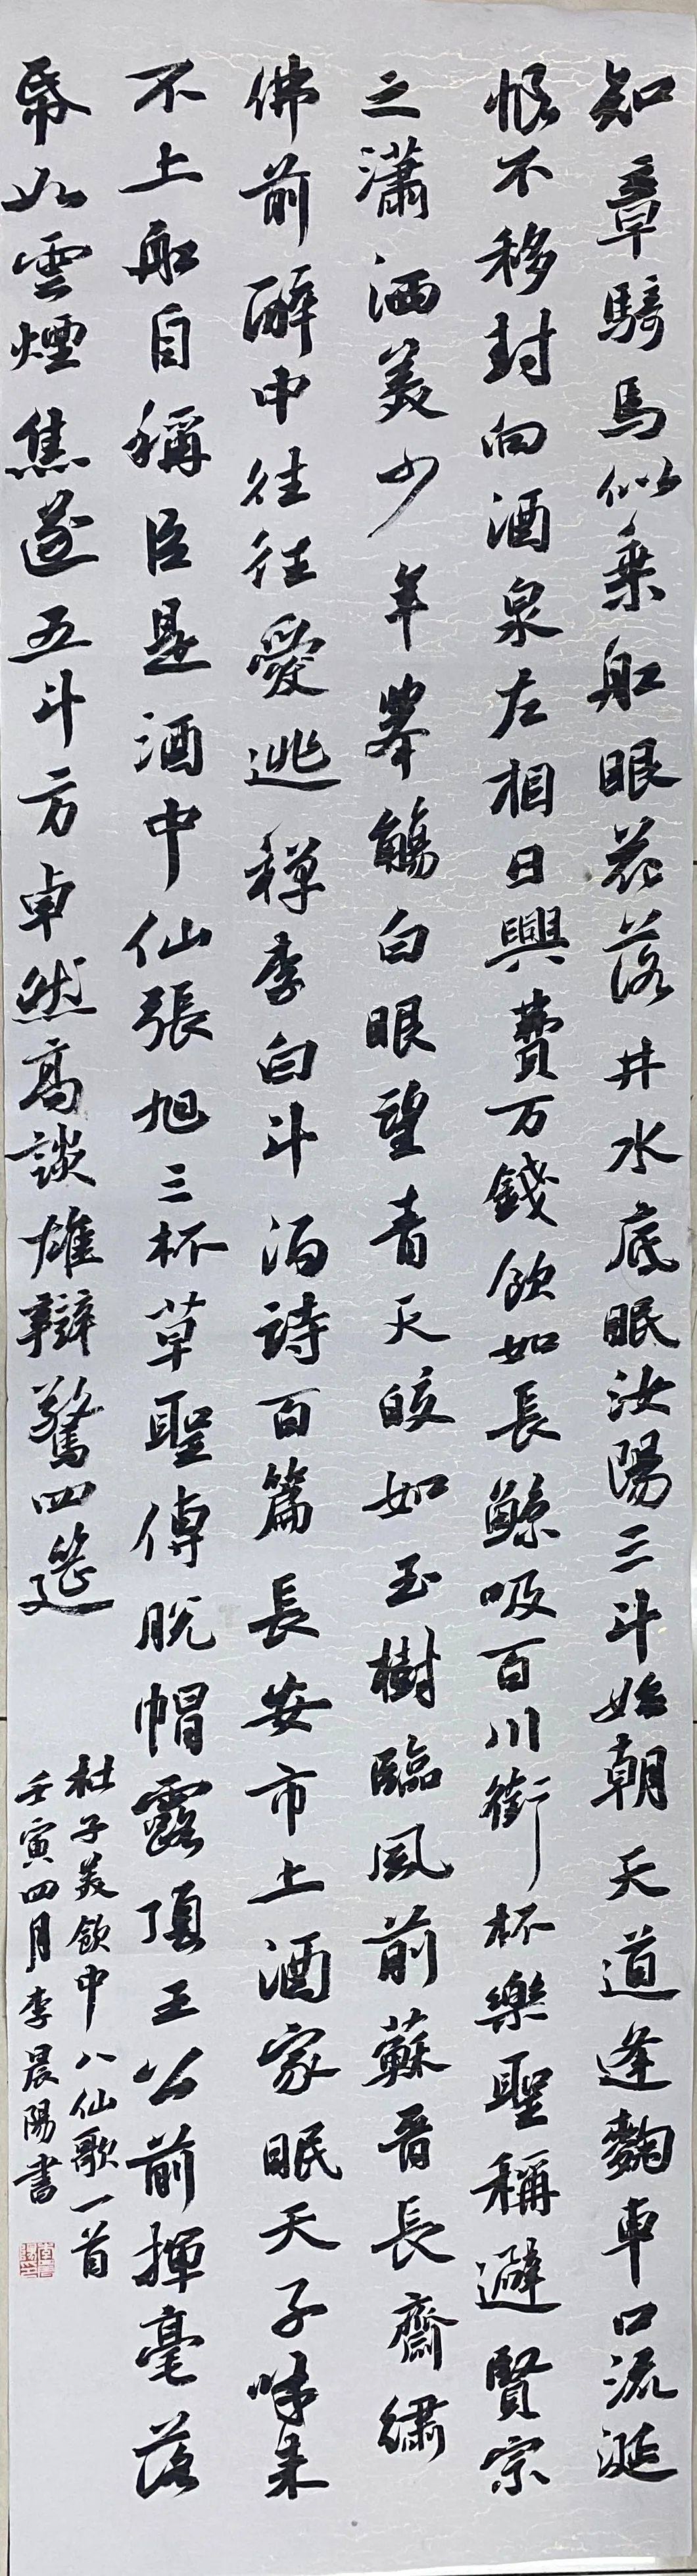 知章騎馬似乘船眼花落井水底眠汝陽三斗始朝天道逢麴車口流涎
恨不移封向酒泉左相日興費万錢飲如長鯨吸百川銜杯樂聖稱避賢宗
之瀟洒美少年舉觴白眼望青天皎如玉樹臨風前蘇晉長齋繡
佛前醉中往往愛逃禪李白斗酒詩百篇長安市上酒家眠天子呼来
不上船自稱臣是酒中仙張旭三杯草聖傳脫帽露頂王公前揮毫落
帋如雲煙焦遂五斗方卓然高談雄辯驚四筵
杜子美飲中八仙歌一首
壬寅四月李晨陽書